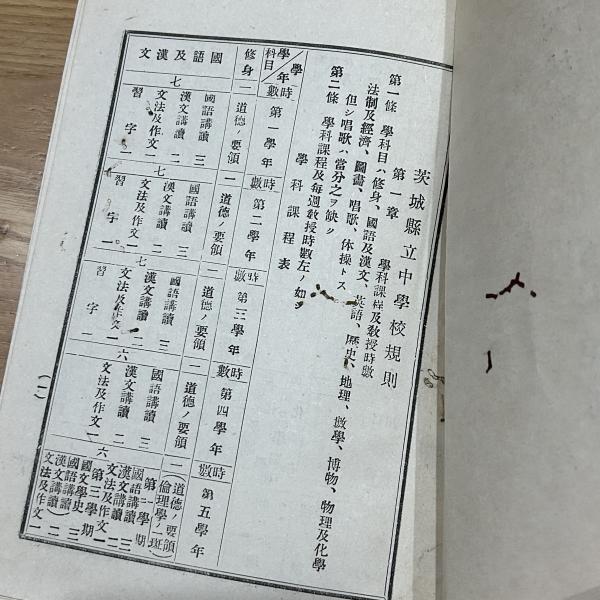 茨城縣立中學校規則
第一章　學科課程及敎授時數
第一條　學科目ハ修身、國語及漢文、英語、歷史、地理、數學、博物、物理及化學
法制及經濟、圖畫、唱歌、体操トス
但シ唱歌ハ當分之ヲ缺ク
第二條　學科課程及每週敎授時數左ノ如シ
學科課程表
學年
學科目
時數 第一學年 時數 第二學年 時數 第三學年 時數 第四學年 時數 第五學年
修身
一 道德ノ要領
一 道德ノ要領
一 道德ノ要領
一 道德ノ要領
一 道德ノ要領
倫理學ノ一斑
國語及漢文
七
國語講讀 三
漢文講讀 二
文法及作文 一
習字 一
七
國語講讀 三
漢文講讀 二
文法及作文 一
習字 一
七
國語講讀 三
漢文講讀 二
文法及作文 一
習字 一
六
國語講讀 三
漢文講讀 二
文法及作文 一
六
第一二學期
國語講讀 三
漢文講讀 二
文法及作文 一
第三學期
國文學史
國語講讀
漢文講讀 二
文法及作文 一
(一)